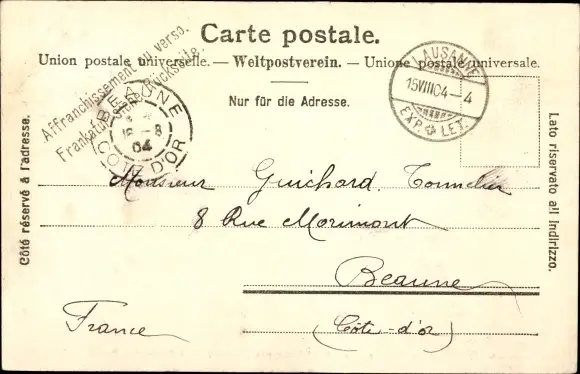 Carte postale.
Union postale universelle. — Weltpostverein. — Unione postale universale.
Nur für die Adresse.
Affranchissement au verso.
Frankatur siehe Rückseite.
BEAUNE
04
COTE D'OR
LAUSANNE
15 VIII 04 – 4
EXP. LET.
Côté réservé à l'adresse.
Lato riservato all indirizzo.
Monsieur Guichard Tonnelier
8 Rue Morimont
Beaune
France
(Côte-d'or)